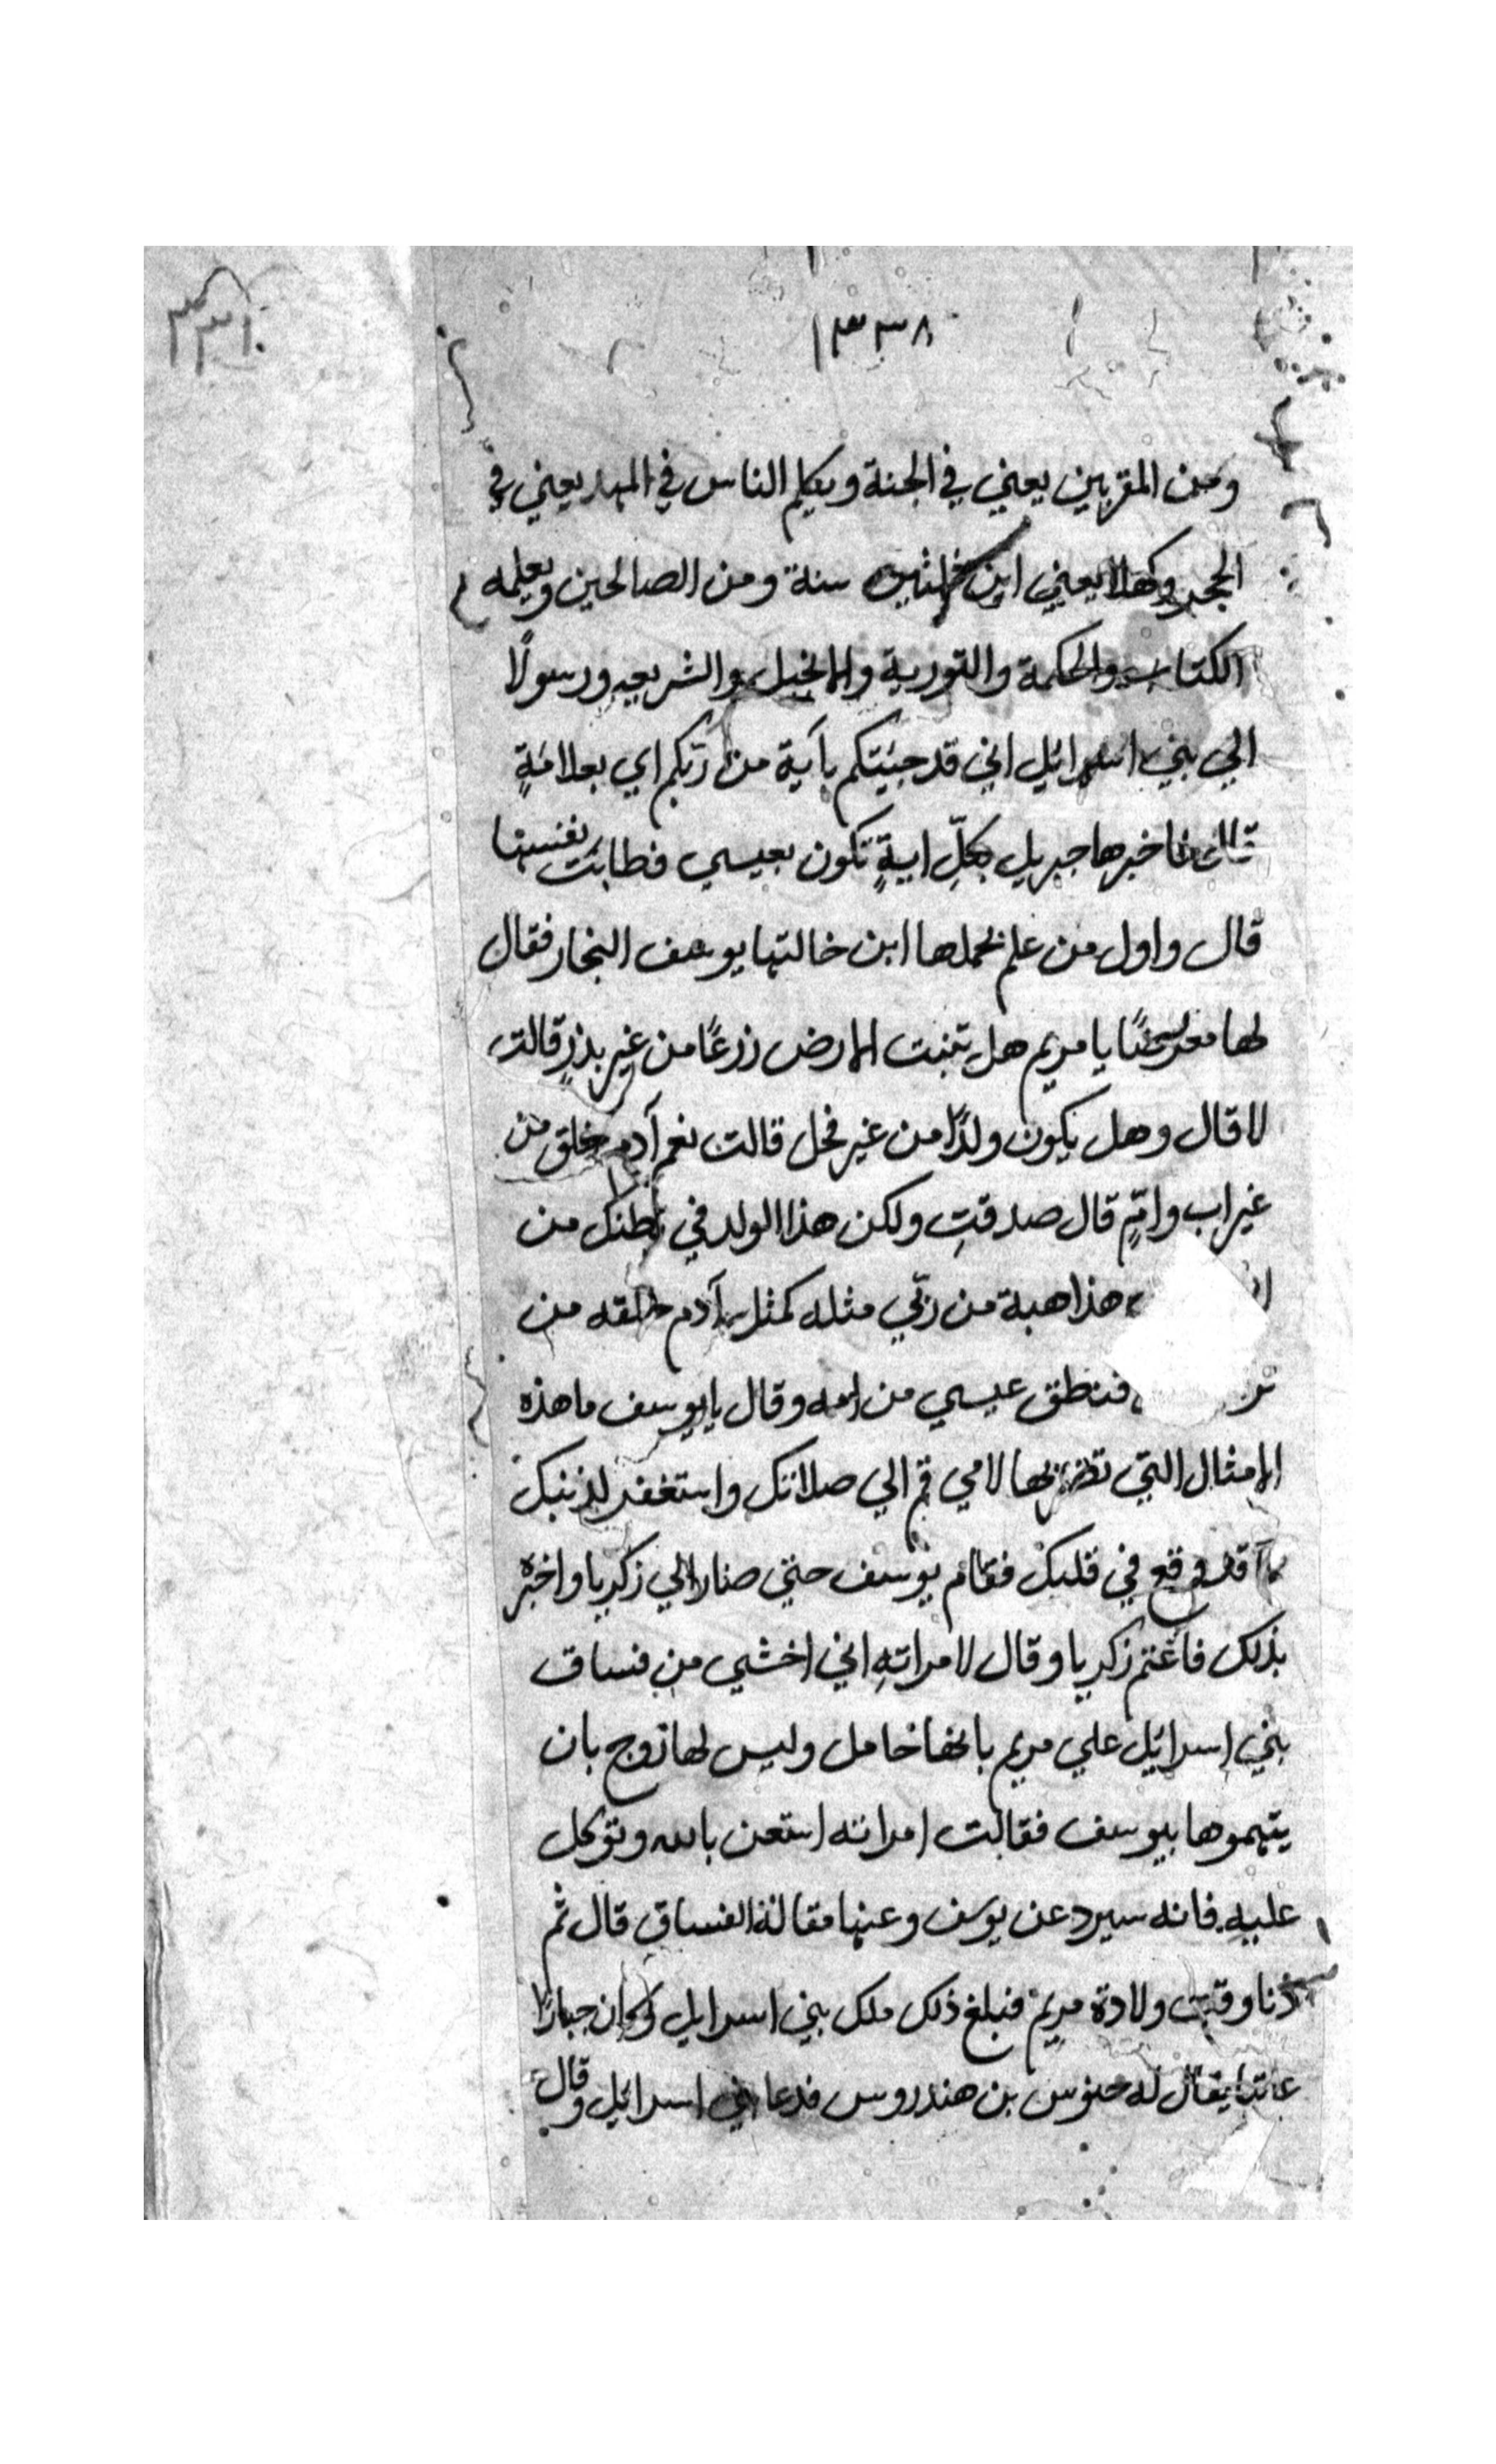 ٣٣١٠
١٣٣٨
ومن المقربين يعني في الجنة ويكلم الناس في المهد يعني في
الحجر وكهلا يعني ابن ثلثين سنة ومن الصالحين ويعلمه
الكتاب والحكمة والتورية والانجيل والشريعه ورسولًا
الي بني اسرائيل اني قد جئيتكم بآية من ربّكم اي بعلامَةٍ
قال فاخبرها جبريل بكلِّ ايةٍ تكون بعيسي فطابَت نفسها
قال واول من علم بحملها ابن خالتها يوسف النجار فقال
لها معرضًا يا مريم هل تنبت الارض زرعًا من غير بذرٍ قالت
لا قال وهل يكون ولدًا من غير فحل قالت نعم آدم خلق من
غير اب وامٍّ قال صدقتِ ولكن هذا الولد في بطنك من
هذا هبة من ربّي مثله كمثل آدم خلقه من
فنطق عيسي من امه وقال يا يوسف ما هذه
الامثال التي تضربها لامي قم الي صلاتك واستغفر لذنبك
مما قد وقع في قلبك فقام يوسف حتي صار الي زكريا واخبره
بذلك فاغتم زكريا وقال لامراتهِ اني اخشي من فساق
بني اسرائيل علي مريم بانها حامل وليس لها زوج بان
يتهموها بيوسف فقالت امراته استعن بالله وتوكل
عليه فانه سيرد عن يوسف وعنها مقالة الفساق قال ثم
دنا وقت ولادة مريم فبلغ ذلك ملك بني اسرايل وكان جبارًا
عاتيا يقال له بن هندروس فدعا بني اسرائيل وقال